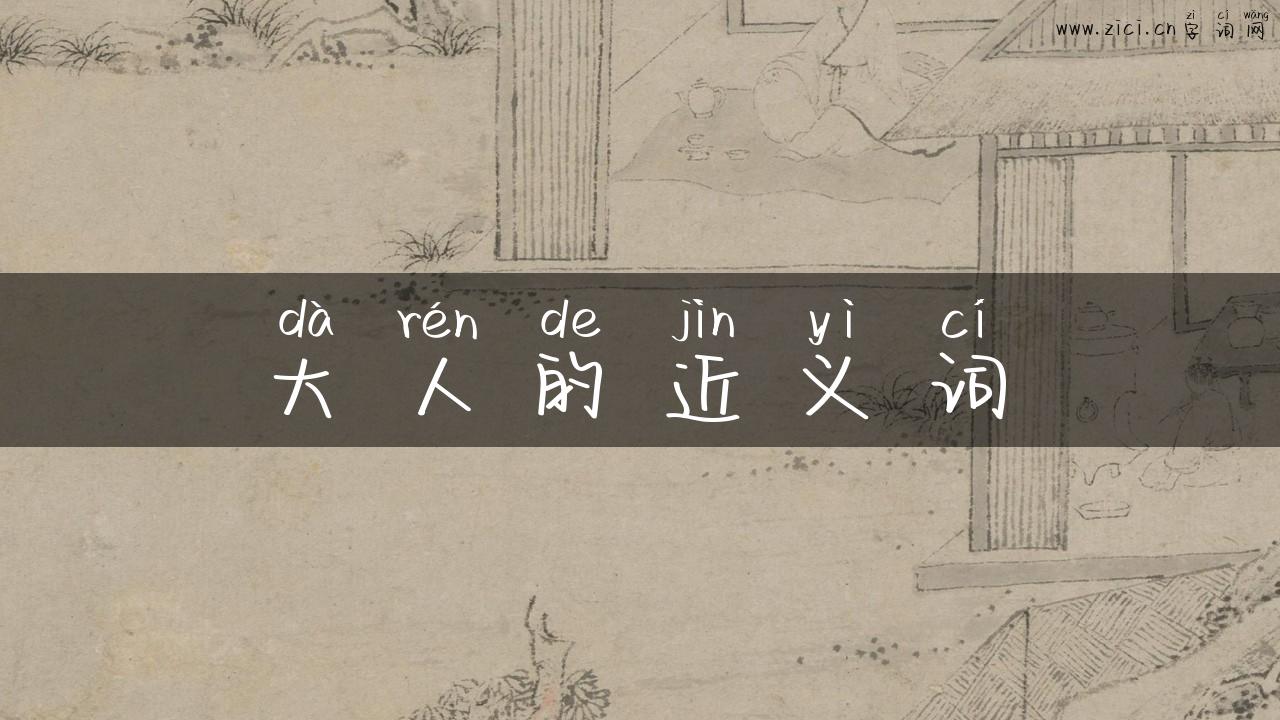 zì cí wǎng
www.zici.cn 字词网
dà rén de jìn yì cí
大人的近义词